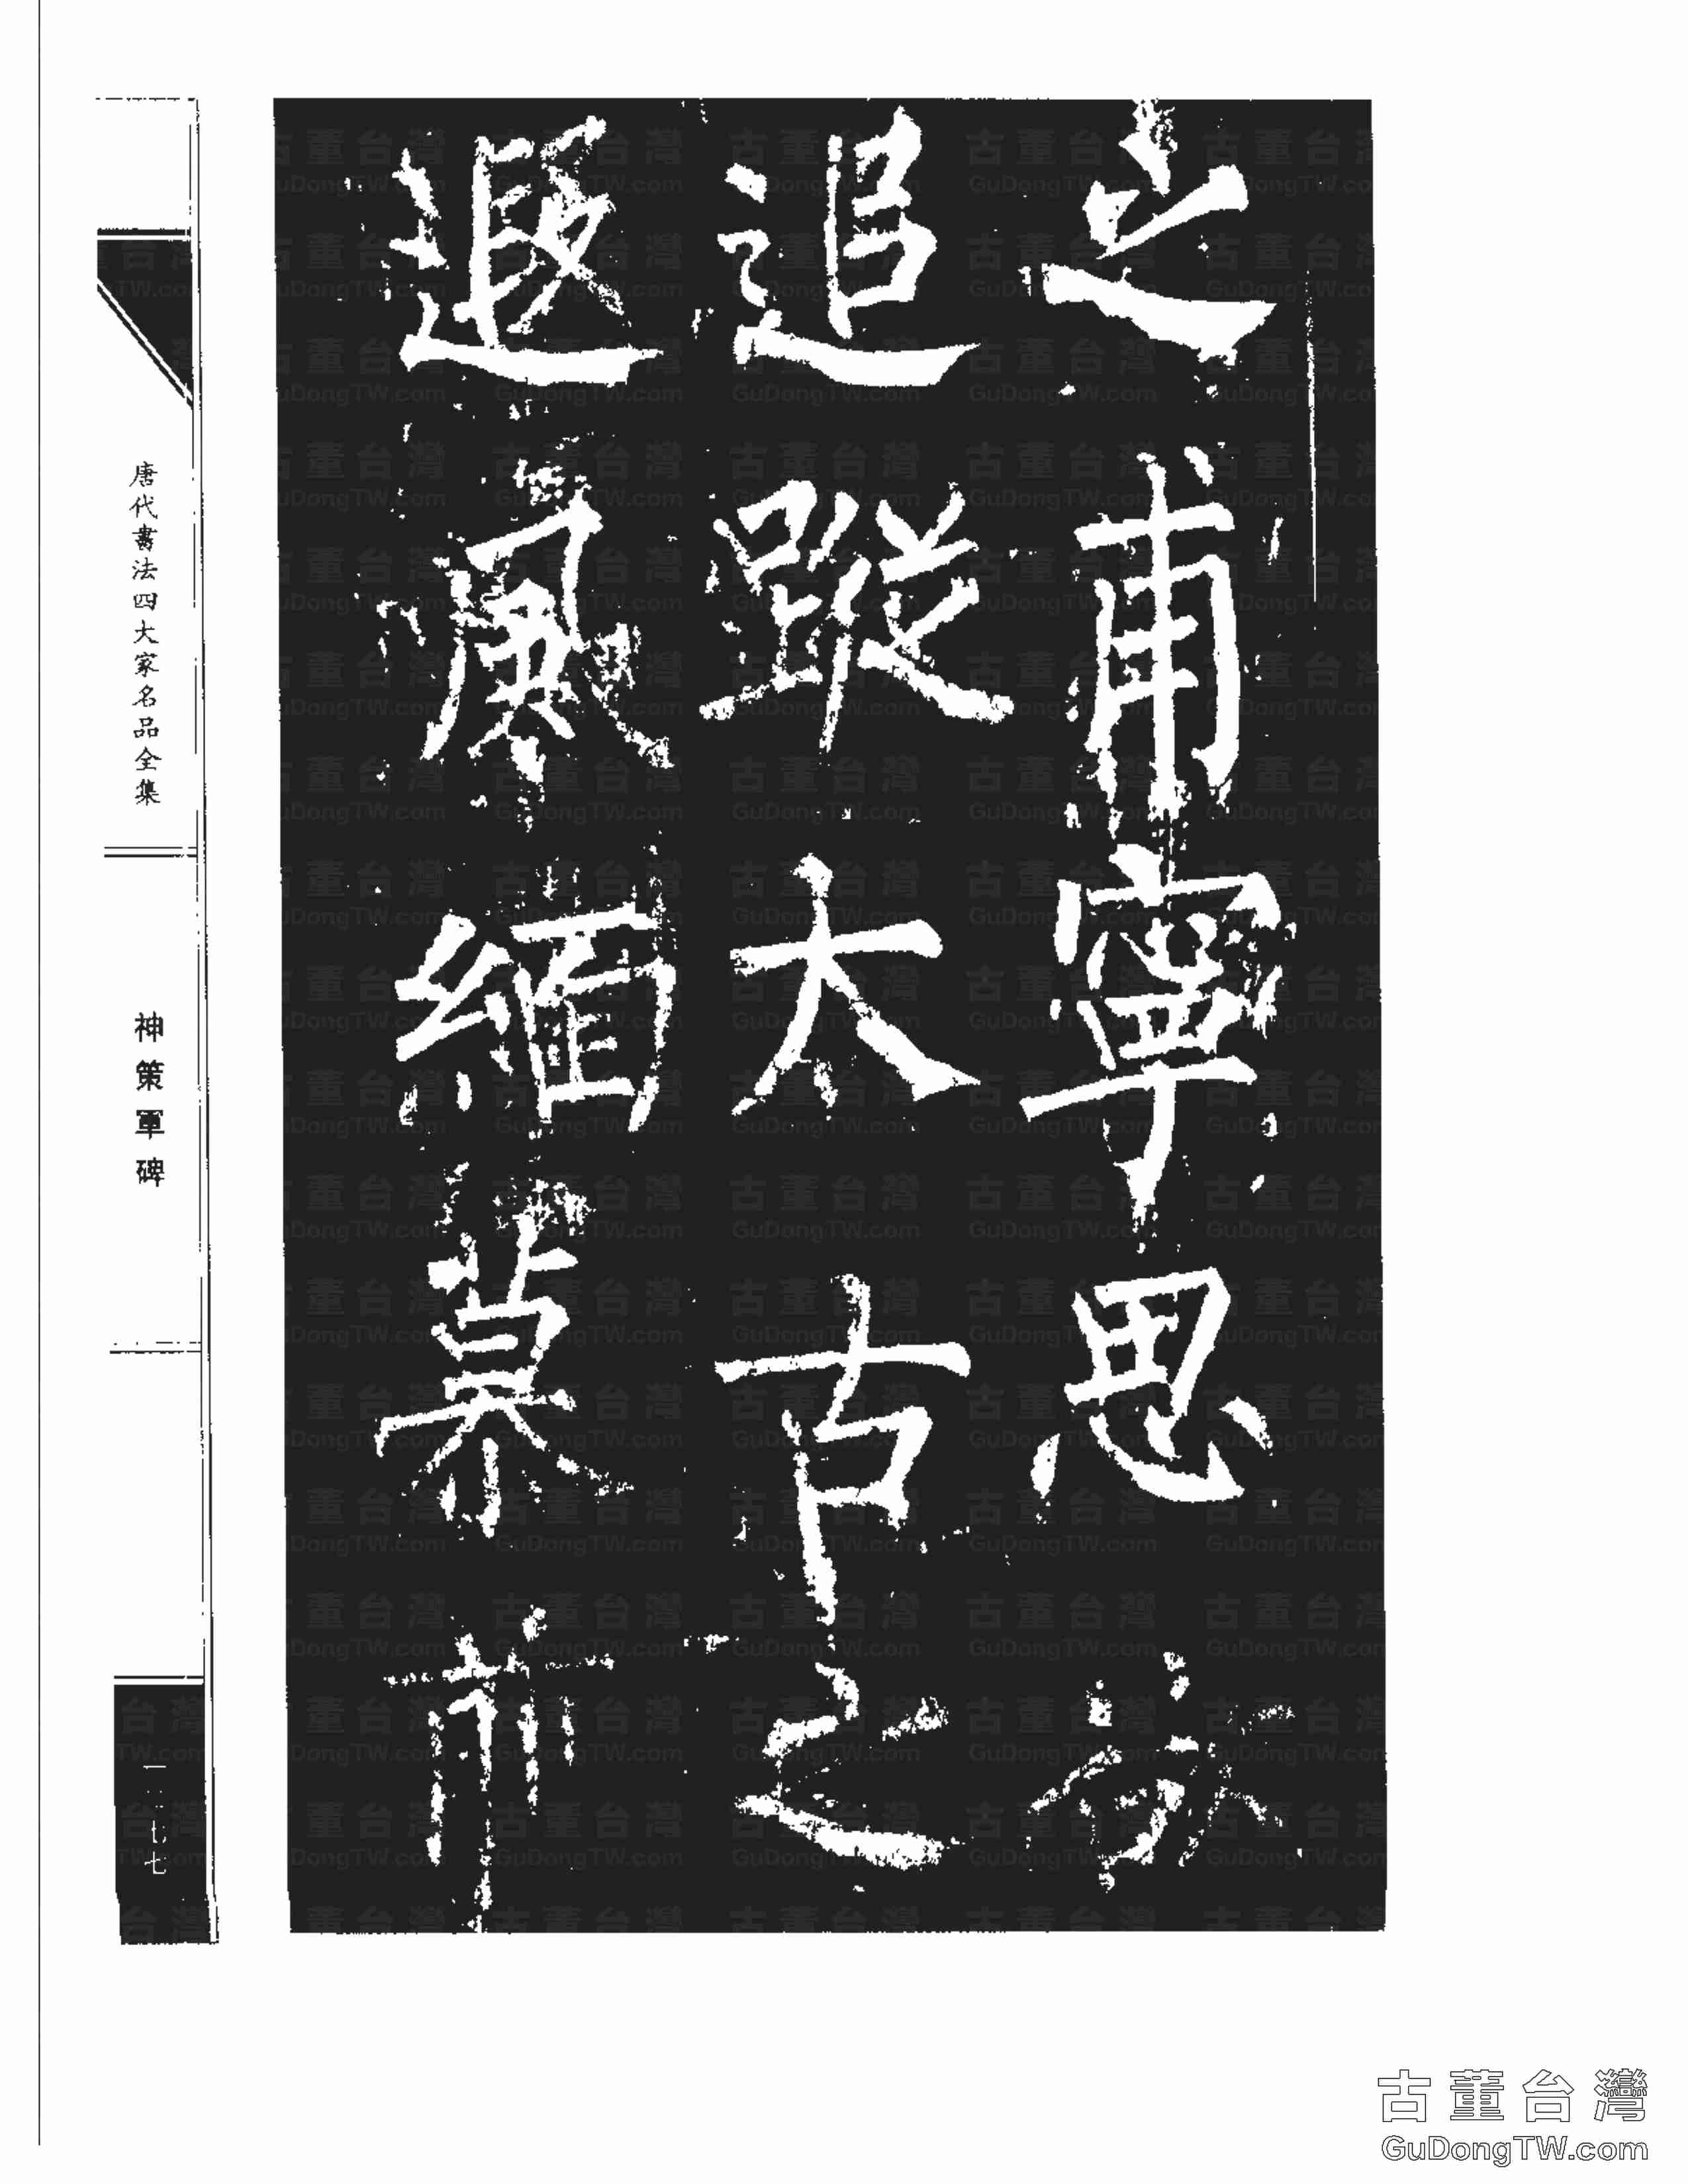 之甫寧思
追蹤太古之
遐風緬慕前
唐代書法四大家名品全集
神策軍碑
一一七七
古董台灣
GuDongTW.com